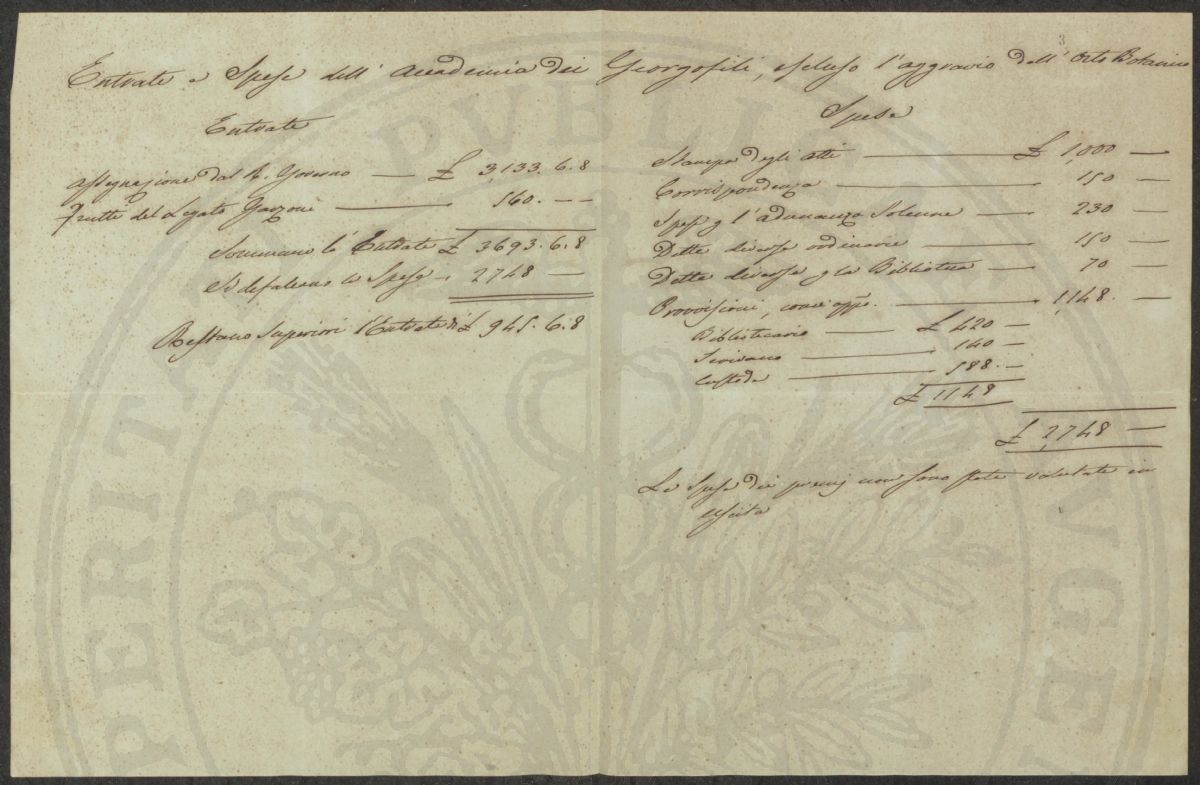 3
Entrate e Spese dell' Accademia dei Georgofili, escluso l'aggravio dell' Orto Botanico
Entrate
Assegnazione dal R. Governo — £ 3,133. 6. 8
Frutti del Legato Garzoni — 560. — —
Sommano le Entrate £ 3693. 6. 8
Si defalcano le Spese 2748 —
Restano Superiori l'Entrate di £ 945. 6. 8
Spese
Stampa degli Atti — £ 1,000 —
Corrispondenza — 150 —
Spese p l'adunanza Solenne — 230 —
Dette diverse ordinarie — 150 —
Dette diverse p la Biblioteca — 70 —
Provvisioni, come appo. — 1,148. —
Bibliotecario — £ 420 —
Scrivano — 140 —
Custode — 588. —
£ 1148
£ 2,748 —
Le Spese dei premj non sono state valutate in
Uscita
PERITATI PVBLICAE AVGE